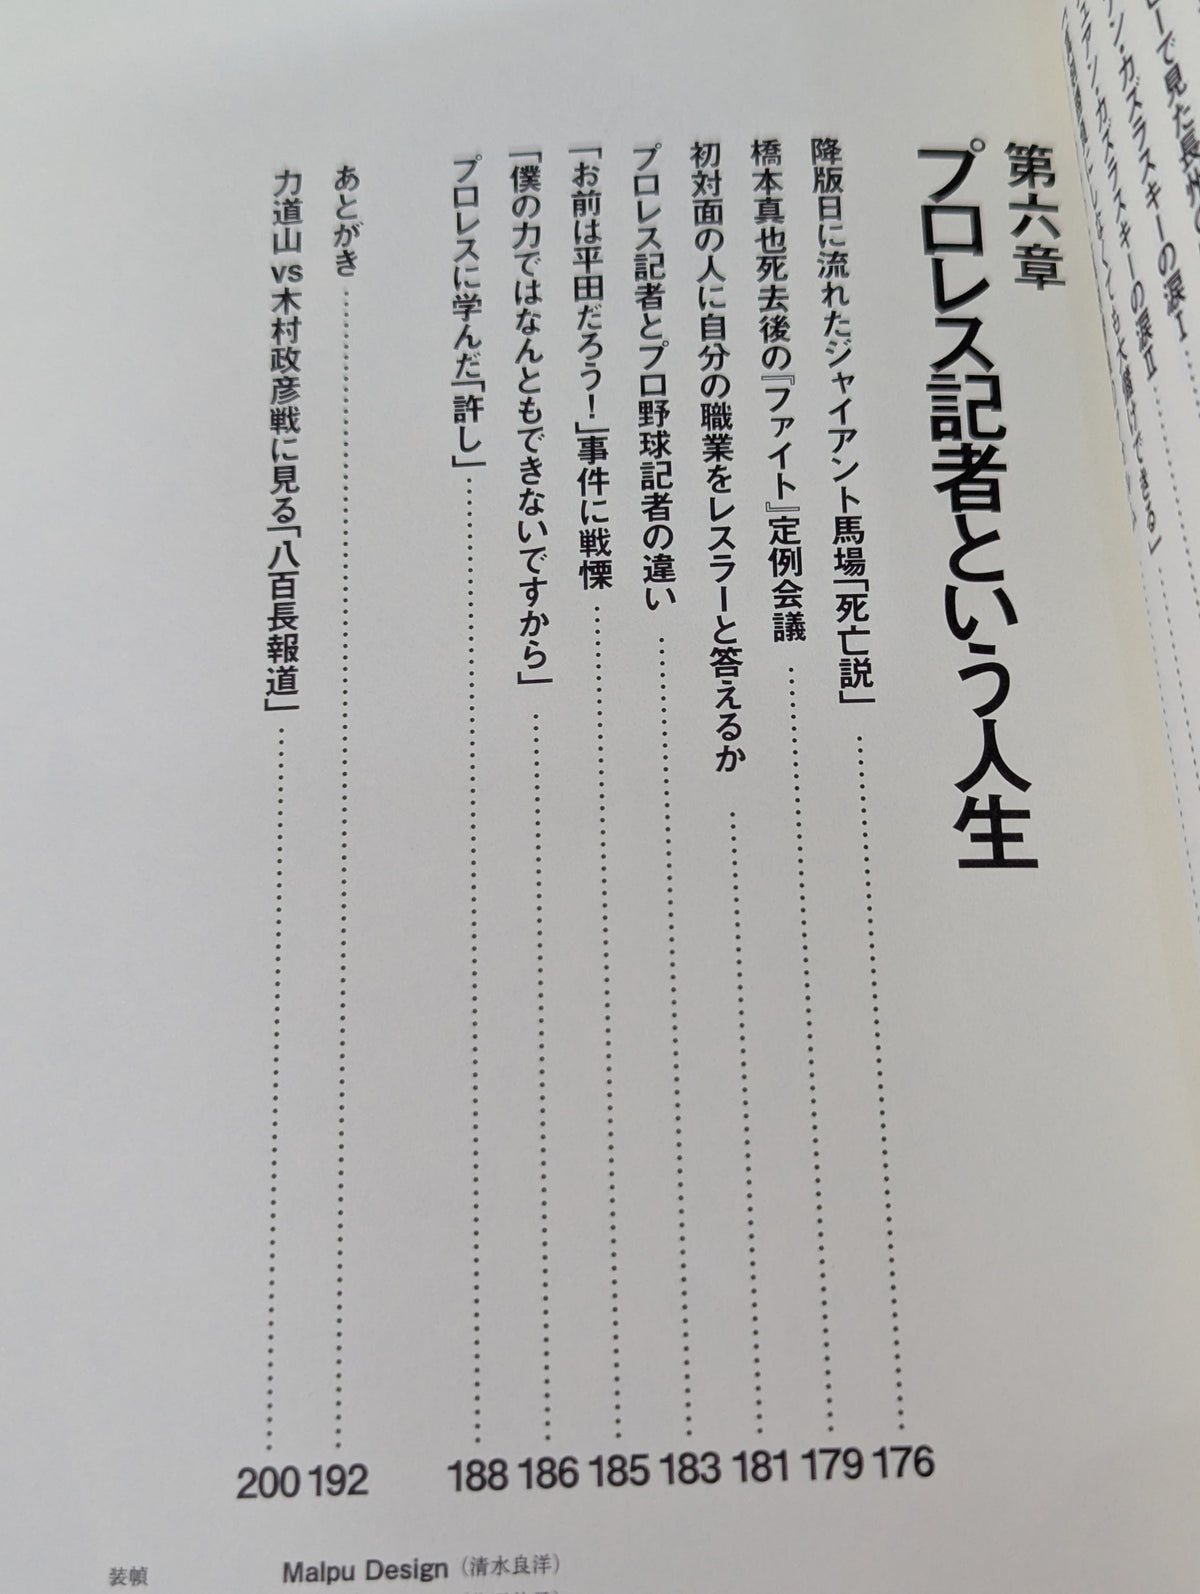 第六章
プロレス記者という人生
降版日に流れたジャイアント馬場「死亡説」……176
橋本真也死去後の『ファイト』定例会議……179
初対面の人に自分の職業をレスラーと答えるか……181
プロレス記者とプロ野球記者の違い……183
「お前は平田だろう！」事件に戦慄……185
「僕の力ではなんともできないですから」……186
プロレスに学んだ「許し」……188
あとがき……192
力道山vs木村政彦戦に見る「八百長報道」……200
装幀 Malpu Design（清水良洋）